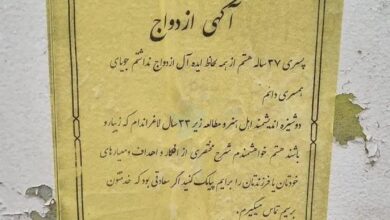 آگهی ازدواج
پسری ۳۷ ساله هستم از همه بلحاظ ایده آل ازدواج نداشتم جویای
همسری دائم
دوشیزه اندیشمند اهل هنر و مطالعه زیر ۲۳ سال لاغر اندام که زیبا رو
باشند هستم. خواهشمندم شرح مختصری از افکار و اهداف و معیارهای
خودتان یا فرزندتان را برایم پیامک کنید اگر سعادتی بود که خدمتتون
برسیم تماس میگیرم.